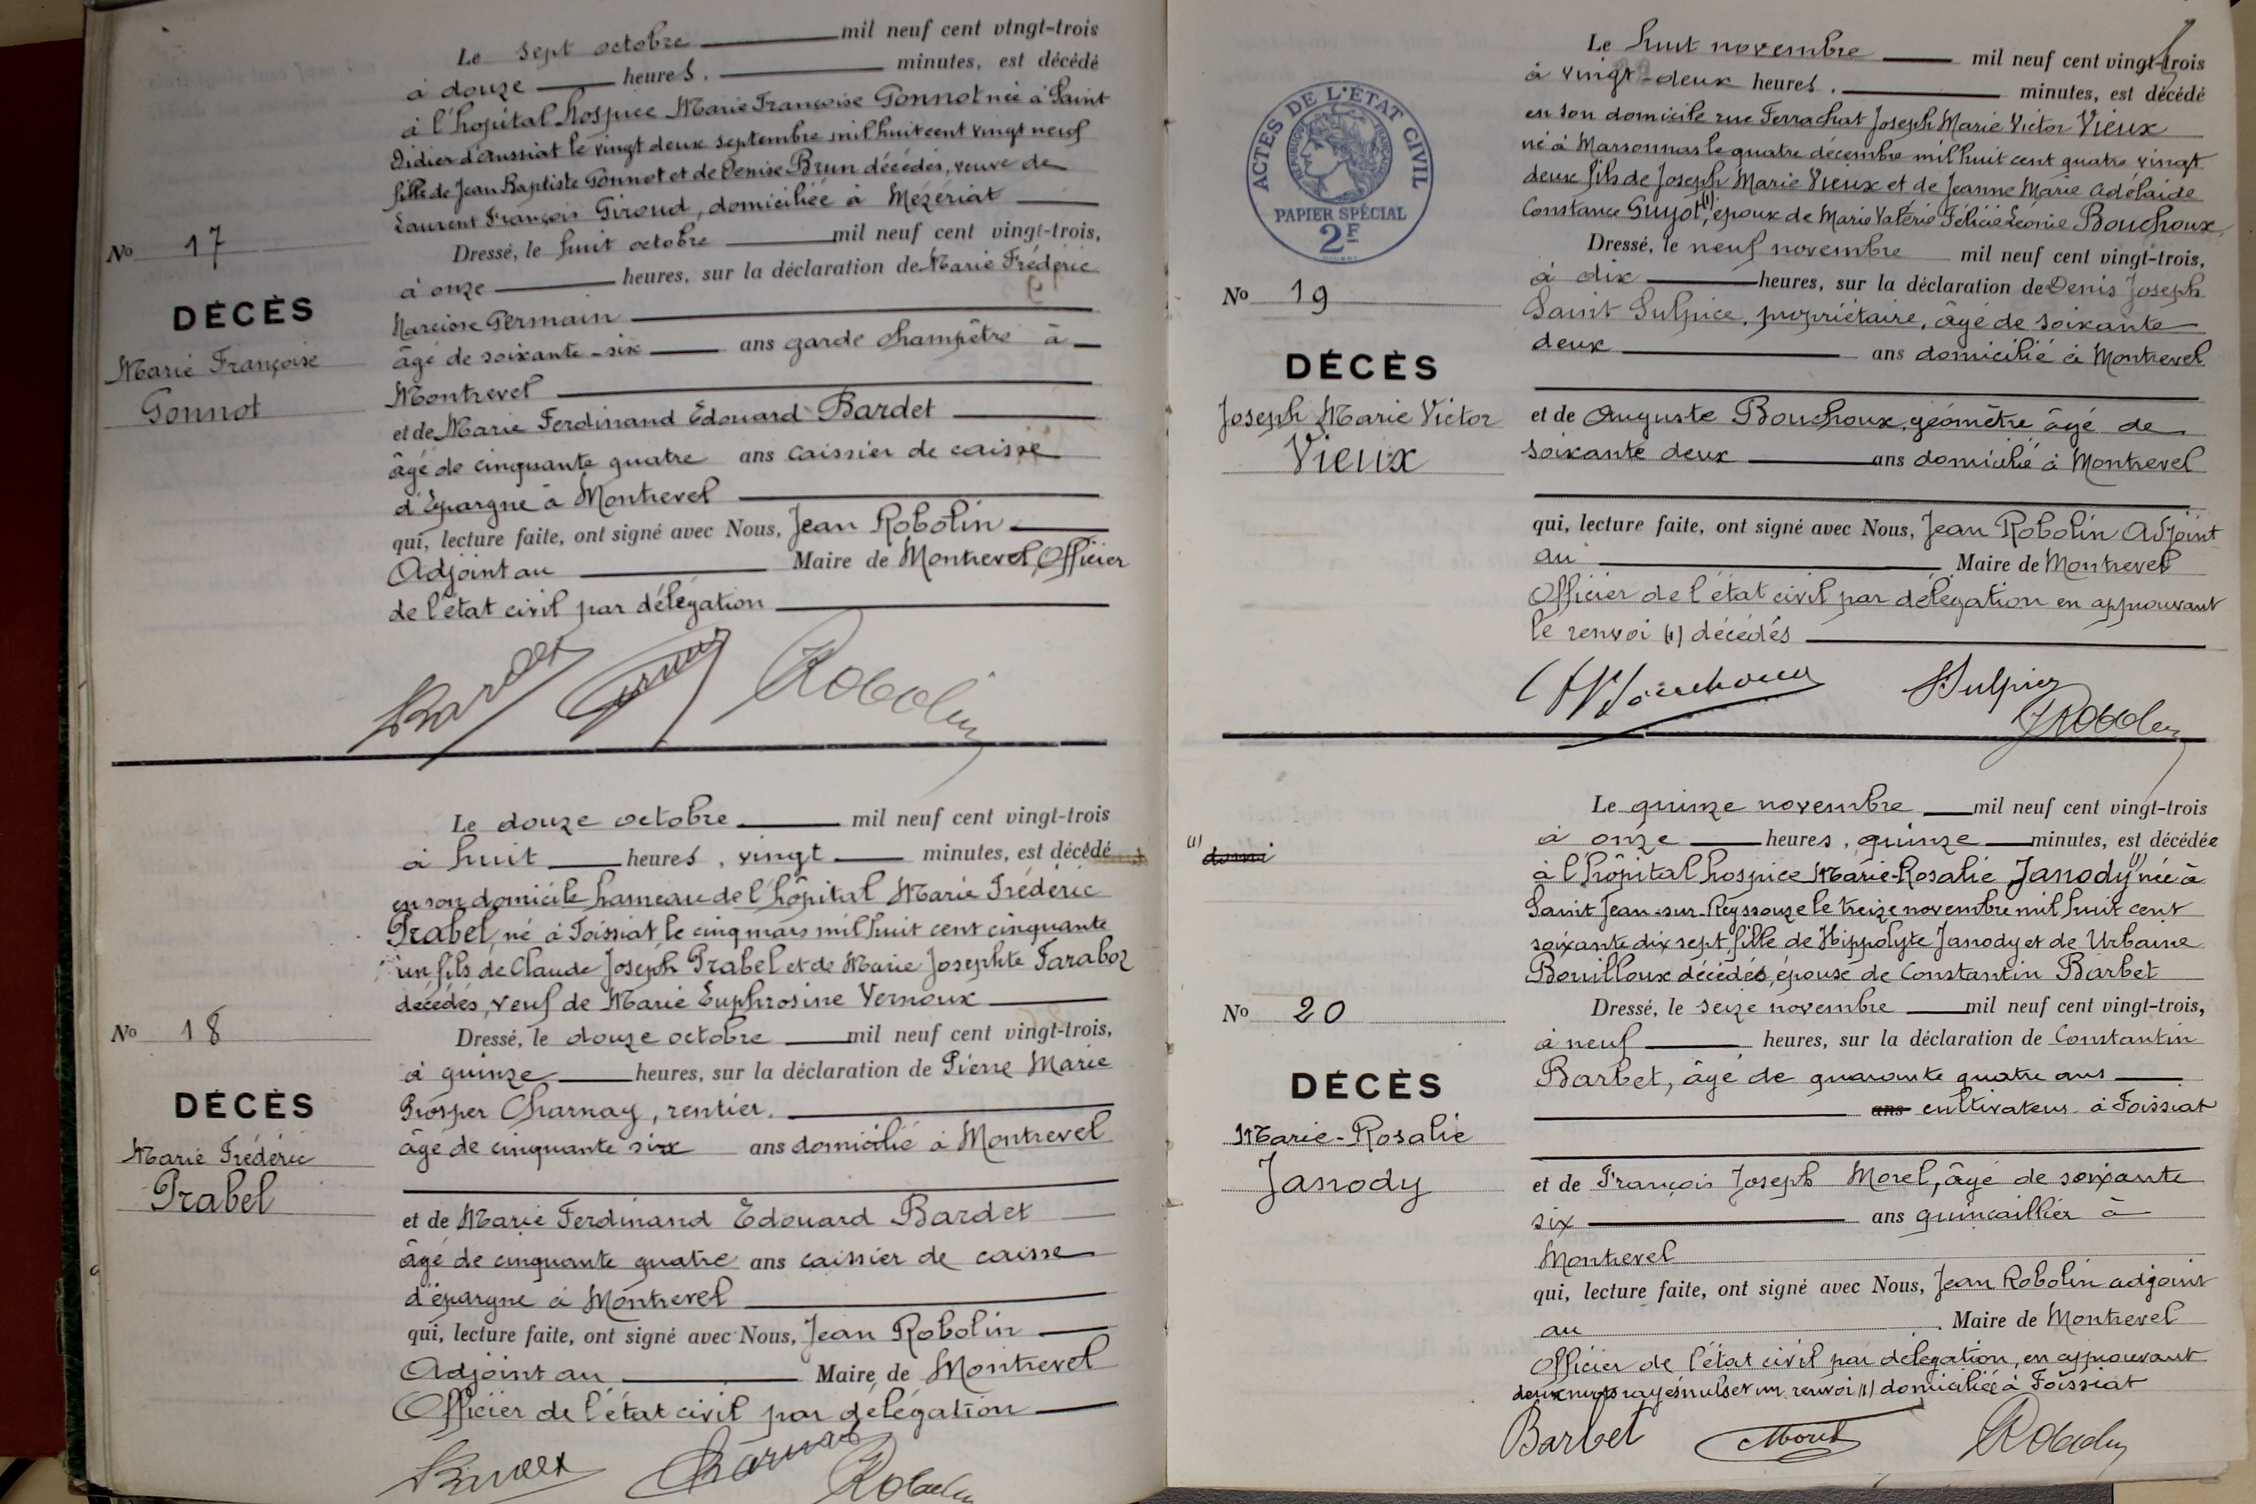 Le sept octobre mil neuf cent vingt-trois
à douze heures, minutes, est décédé
à l'hopital hospice Marie Françoise Gonnot née à Saint
Didier d'Aussiat le vingt deux septembre mil huit cent vingt neuf
fille de Jean Baptiste Gonnot et de Denise Brun décédés, veuve de
Laurent François Giroud, domiciliée à Mézériat
No 17
Dressé, le huit octobre mil neuf cent vingt-trois,
à onze heures, sur la déclaration de Marie Frédéric
DÉCÈS
Narcisse Germain
Marie Françoise
âgé de soixante-six ans garde champêtre à
Gonnot
Montrevel
et de Marie Ferdinand Edouard Bardet
âgé de cinquante quatre ans caissier de caisse
d'Epargne à Montrevel
qui, lecture faite, ont signé avec Nous, Jean Robolin
Adjoint au Maire de Montrevel, Officier
de l'état civil par délégation
Bardet Germain Robolin
Le douze octobre mil neuf cent vingt-trois
à huit heures, vingt minutes, est décédé
en son domicile hameau de l'hôpital Marie Frédéric
Prabel, né à Foissiat le cinq mars mil huit cent cinquante
un fils de Claude Joseph Prabel et de Marie Josephte Faraboz
décédés, veuf de Marie Euphrosine Vernoux
No 18
Dressé, le douze octobre mil neuf cent vingt-trois,
à quinze heures, sur la déclaration de Pierre Marie
DÉCÈS
Prosper Charnay, rentier.
Marie Frédéric
âgé de cinquante six ans domicilié à Montrevel
Prabel
et de Marie Ferdinand Edouard Bardet
âgé de cinquante quatre ans caissier de caisse
d'épargne à Montrevel
qui, lecture faite, ont signé avec Nous, Jean Robolin
Adjoint au Maire de Montrevel
Officier de l'état civil par délégation
Bardet Charnay Robolin
Le huit novembre mil neuf cent vingt-trois
à vingt-deux heures, minutes, est décédé
en son domicile rue Ferrachat Joseph Marie Victor Vieux
né à Marsonnas le quatre décembre mil huit cent quatre vingt
deux fils de Joseph Marie Vieux et de Jeanne Marie Adélaide
Constance Guyot,(1) époux de Marie Valérie Félicie Léonie Bouchoux
ACTES DE L'ÉTAT CIVIL
RÉPUBLIQUE FRANÇAISE
PAPIER SPÉCIAL
2F
Dressé, le neuf novembre mil neuf cent vingt-trois,
No 19
à dix heures, sur la déclaration de Denis Joseph
Saint Sulpice, propriétaire, âgé de soixante
DÉCÈS
deux ans domicilié à Montrevel
Joseph Marie Victor
et de Auguste Bouchoux, géomètre âgé de
Vieux
soixante deux ans domicilié à Montrevel
qui, lecture faite, ont signé avec Nous, Jean Robolin Adjoint
au Maire de Montrevel
Officier de l'état civil par délégation en approuvant
le renvoi (1) décédés
Bouchoux Sulpice Robolin
Le quinze novembre mil neuf cent vingt-trois
à onze heures, quinze minutes, est décédée
(1) domi
à l'hôpital hospice Marie-Rosalie Janody (1) née à
Saint Jean-sur-Reyssouze le treize novembre mil huit cent
soixante dix sept fille de Hippolyte Janody et de Urbaine
Bouilloux décédés, épouse de Constantin Barbet
No 20
Dressé, le seize novembre mil neuf cent vingt-trois,
à neuf heures, sur la déclaration de Constantin
DÉCÈS
Barbet, âgé de quarante quatre ans
ans cultivateur à Foissiat
Marie-Rosalie
Janody
et de François Joseph Morel, âgé de soixante
six ans quincaillier à
Montrevel
qui, lecture faite, ont signé avec Nous, Jean Robolin adjoint
au Maire de Montrevel
Officier de l'état civil par délégation, en approuvant
deux mots rayés nuls et un renvoi (1) domiciliée à Foissiat
Barbet Morel Robolin